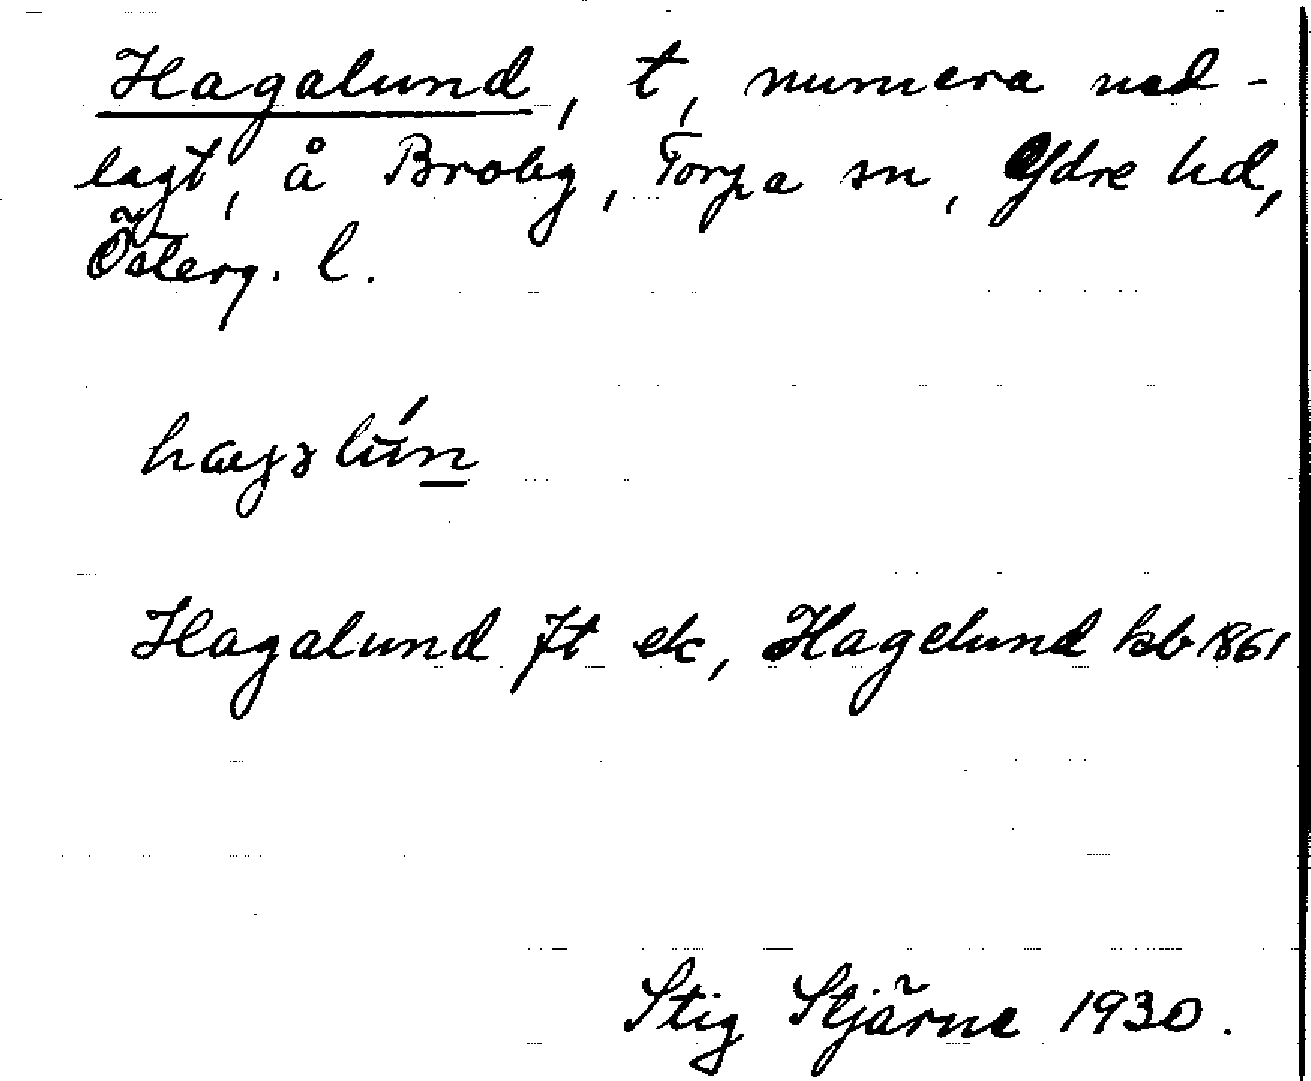 Hagalund, t, numera ned-
lagt, å Broby, Torpa sn, Ydre hd,
Österg. l.
hagəlún
Hagalund Jt ek, Hagelund kb 1861
Stig Stjärne 1930.